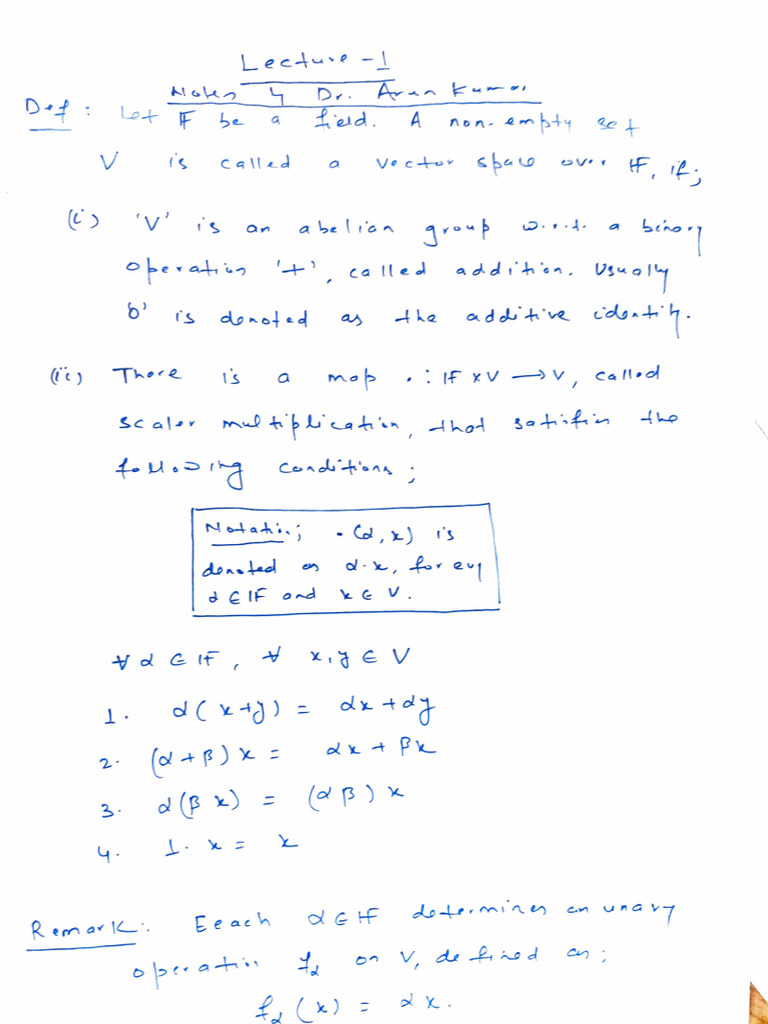 Lecture - 1
Notes by Dr. Arun Kumar
Def : Let 𝔽 be a field. A non-empty set
V is called a vector space over 𝔽, if;
(i) 'V' is an abelian group w.r.t. a binary
operation '+', called addition. Usually
'0' is denoted as the additive identity.
(ii) There is a map · : 𝔽 × V → V, called
scaler multiplication, that satisfies the
following conditions ;
Notation; ·(α, x) is
denoted as α·x, for every
α ∈ 𝔽 and x ∈ V.
∀ α ∈ 𝔽, ∀ x, y ∈ V
1. α(x+y) = αx + αy
2. (α + β) x = αx + βx
3. α(βx) = (αβ) x
4. 1. x = x
Remark: Eeach α ∈ 𝔽 determines an unary
operation f_α on V, defined as;
f_α (x) = αx.